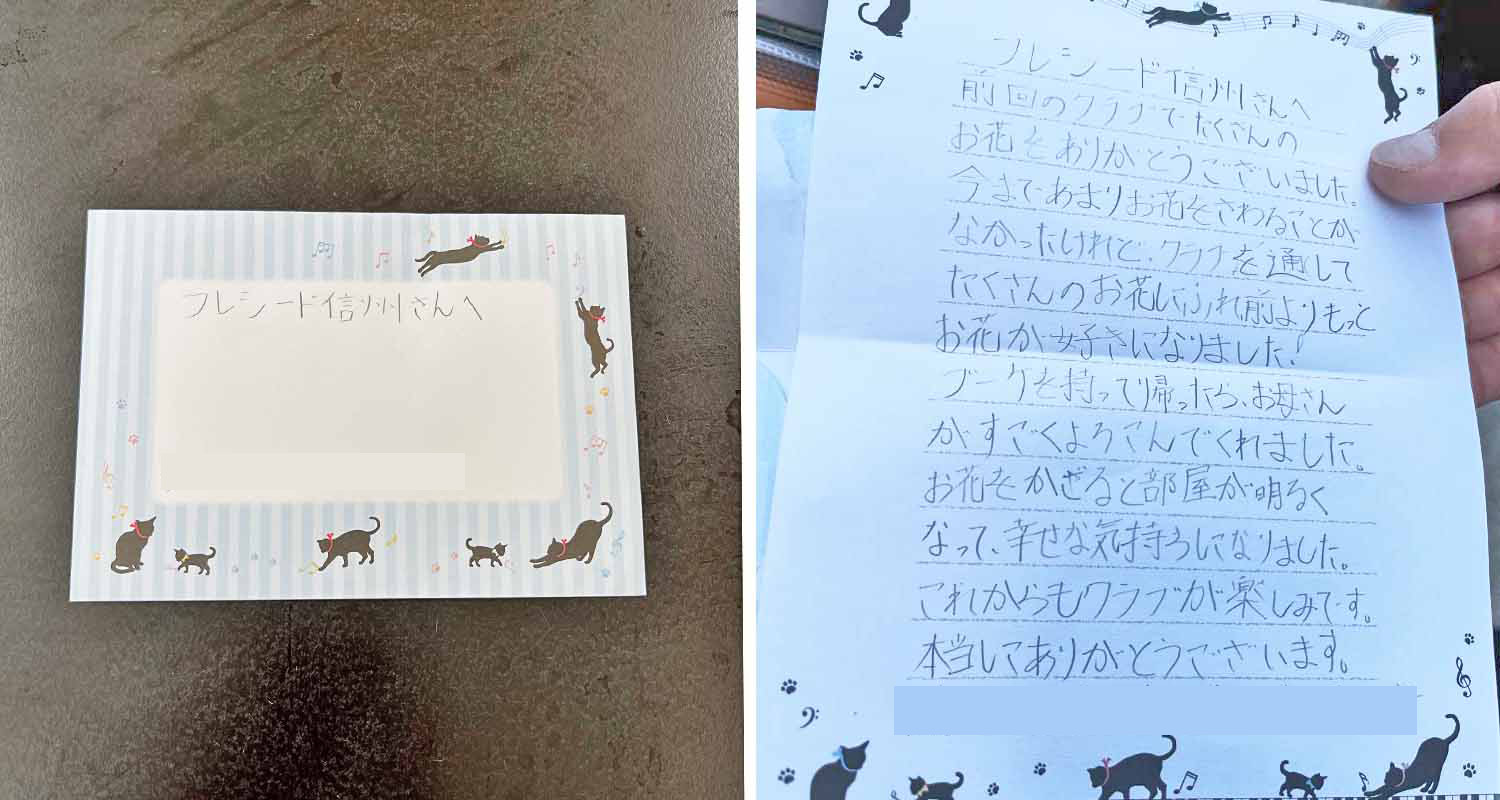 フレシード信州さんへ
フレシード信州さんへ
前回のクラブでたくさんの
お花をありがとうございました。
今まであまりお花をさわることが
なかったけれど、クラブを通して
たくさんのお花にふれ前よりもっと
お花が好きになりました!
ブーケを持って帰ったら、お母さん
がすごくよろこんでくれました。
お花をかざると部屋が明るく
なって、幸せな気持ちになりました。
これからもクラブが楽しみです。
本当にありがとうございます。